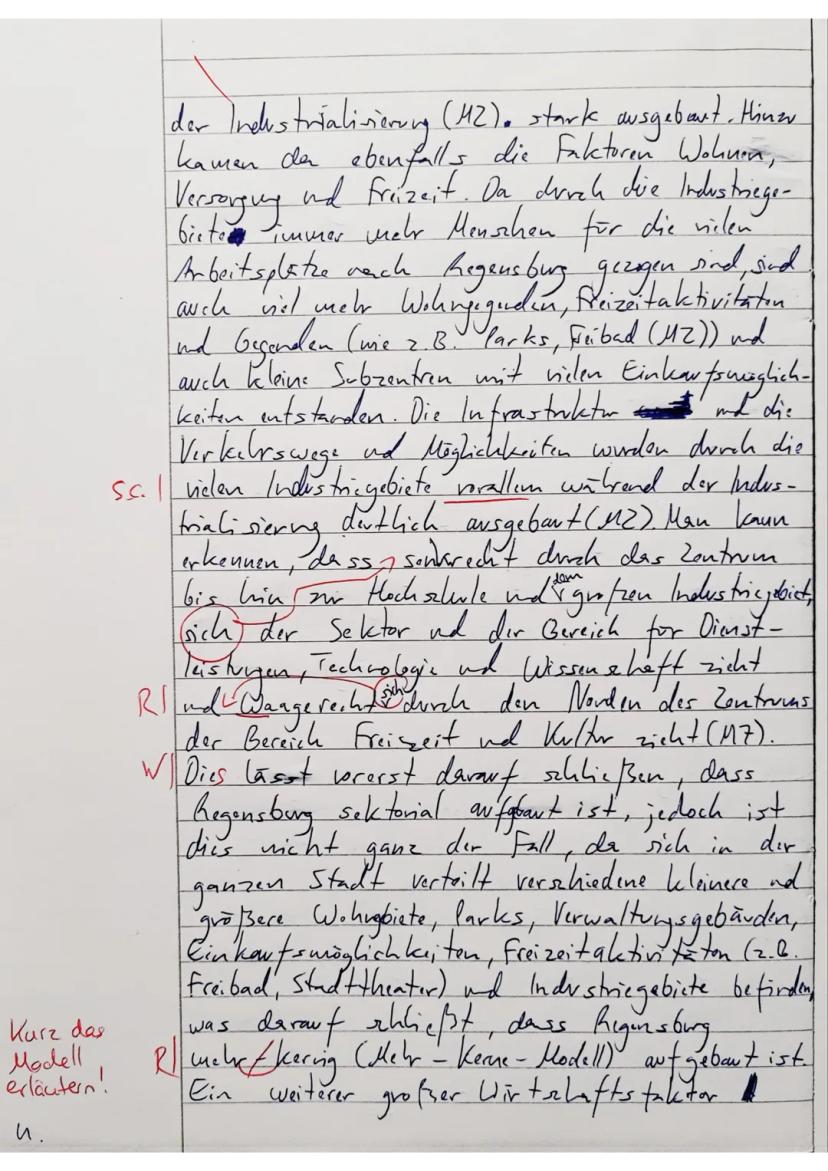 der Industrialisierung (M2). stark ausgebaut. Hinzu
kamen da ebenfalls die Faktoren Wohnen,
Versorgung und Freizeit. Da durch die Industriege-
biete immer mehr Menschen für die vielen
Arbeitsplätze nach Regensburg gezogen sind, sind
auch viel mehr Wohngegenden, Freizeitaktivitäten
und Gegenden (wie z.B. Parks, Freibad (M2)) und
auch kleine Subzentren mit vielen Einkaufsmöglich-
keiten entstanden. Die Infrastruktur und die
Verkehrswege und Möglichkeiten wurden durch die
s.c. | vielen Industriegebiete vorallem während der Indus-
trialisierung deutlich ausgebaut (M2). Man kann
erkennen, dass senkrecht durch das Zentrum
bis hin zur Hochschule und dem großen Industriegebiet,
sich der Sektor und der Bereich für Dienst-
leistungen, Technologie und Wissenschaft zieht
R| und Waagerecht sich durch den Norden des Zentrums
der Bereich Freizeit und Kultur zieht (M7).
W| Dies lässt vorerst darauf schließen, dass
Regensburg sektorial aufgbaut ist, jedoch ist
dies nicht ganz der Fall, da sich in der
ganzen Stadt verteilt verschiedene kleinere und
größere Wohngbiete, Parks, Verwaltungsgebäuden,
Einkaufsmöglichkeiten, Freizeitaktivitäten (z.B.
Freibad, Stadttheater) und Industriegebiete befinden,
was darauf schließt, dass Regensburg
R| mehr-kernig (Mehr-Kerne-Modell) aufgebaut ist.
Ein weiterer großer Wirtschaftsfaktor
Kurz das
Modell
erläutern!